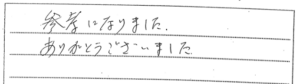 参考になりました.
ありがとうございました